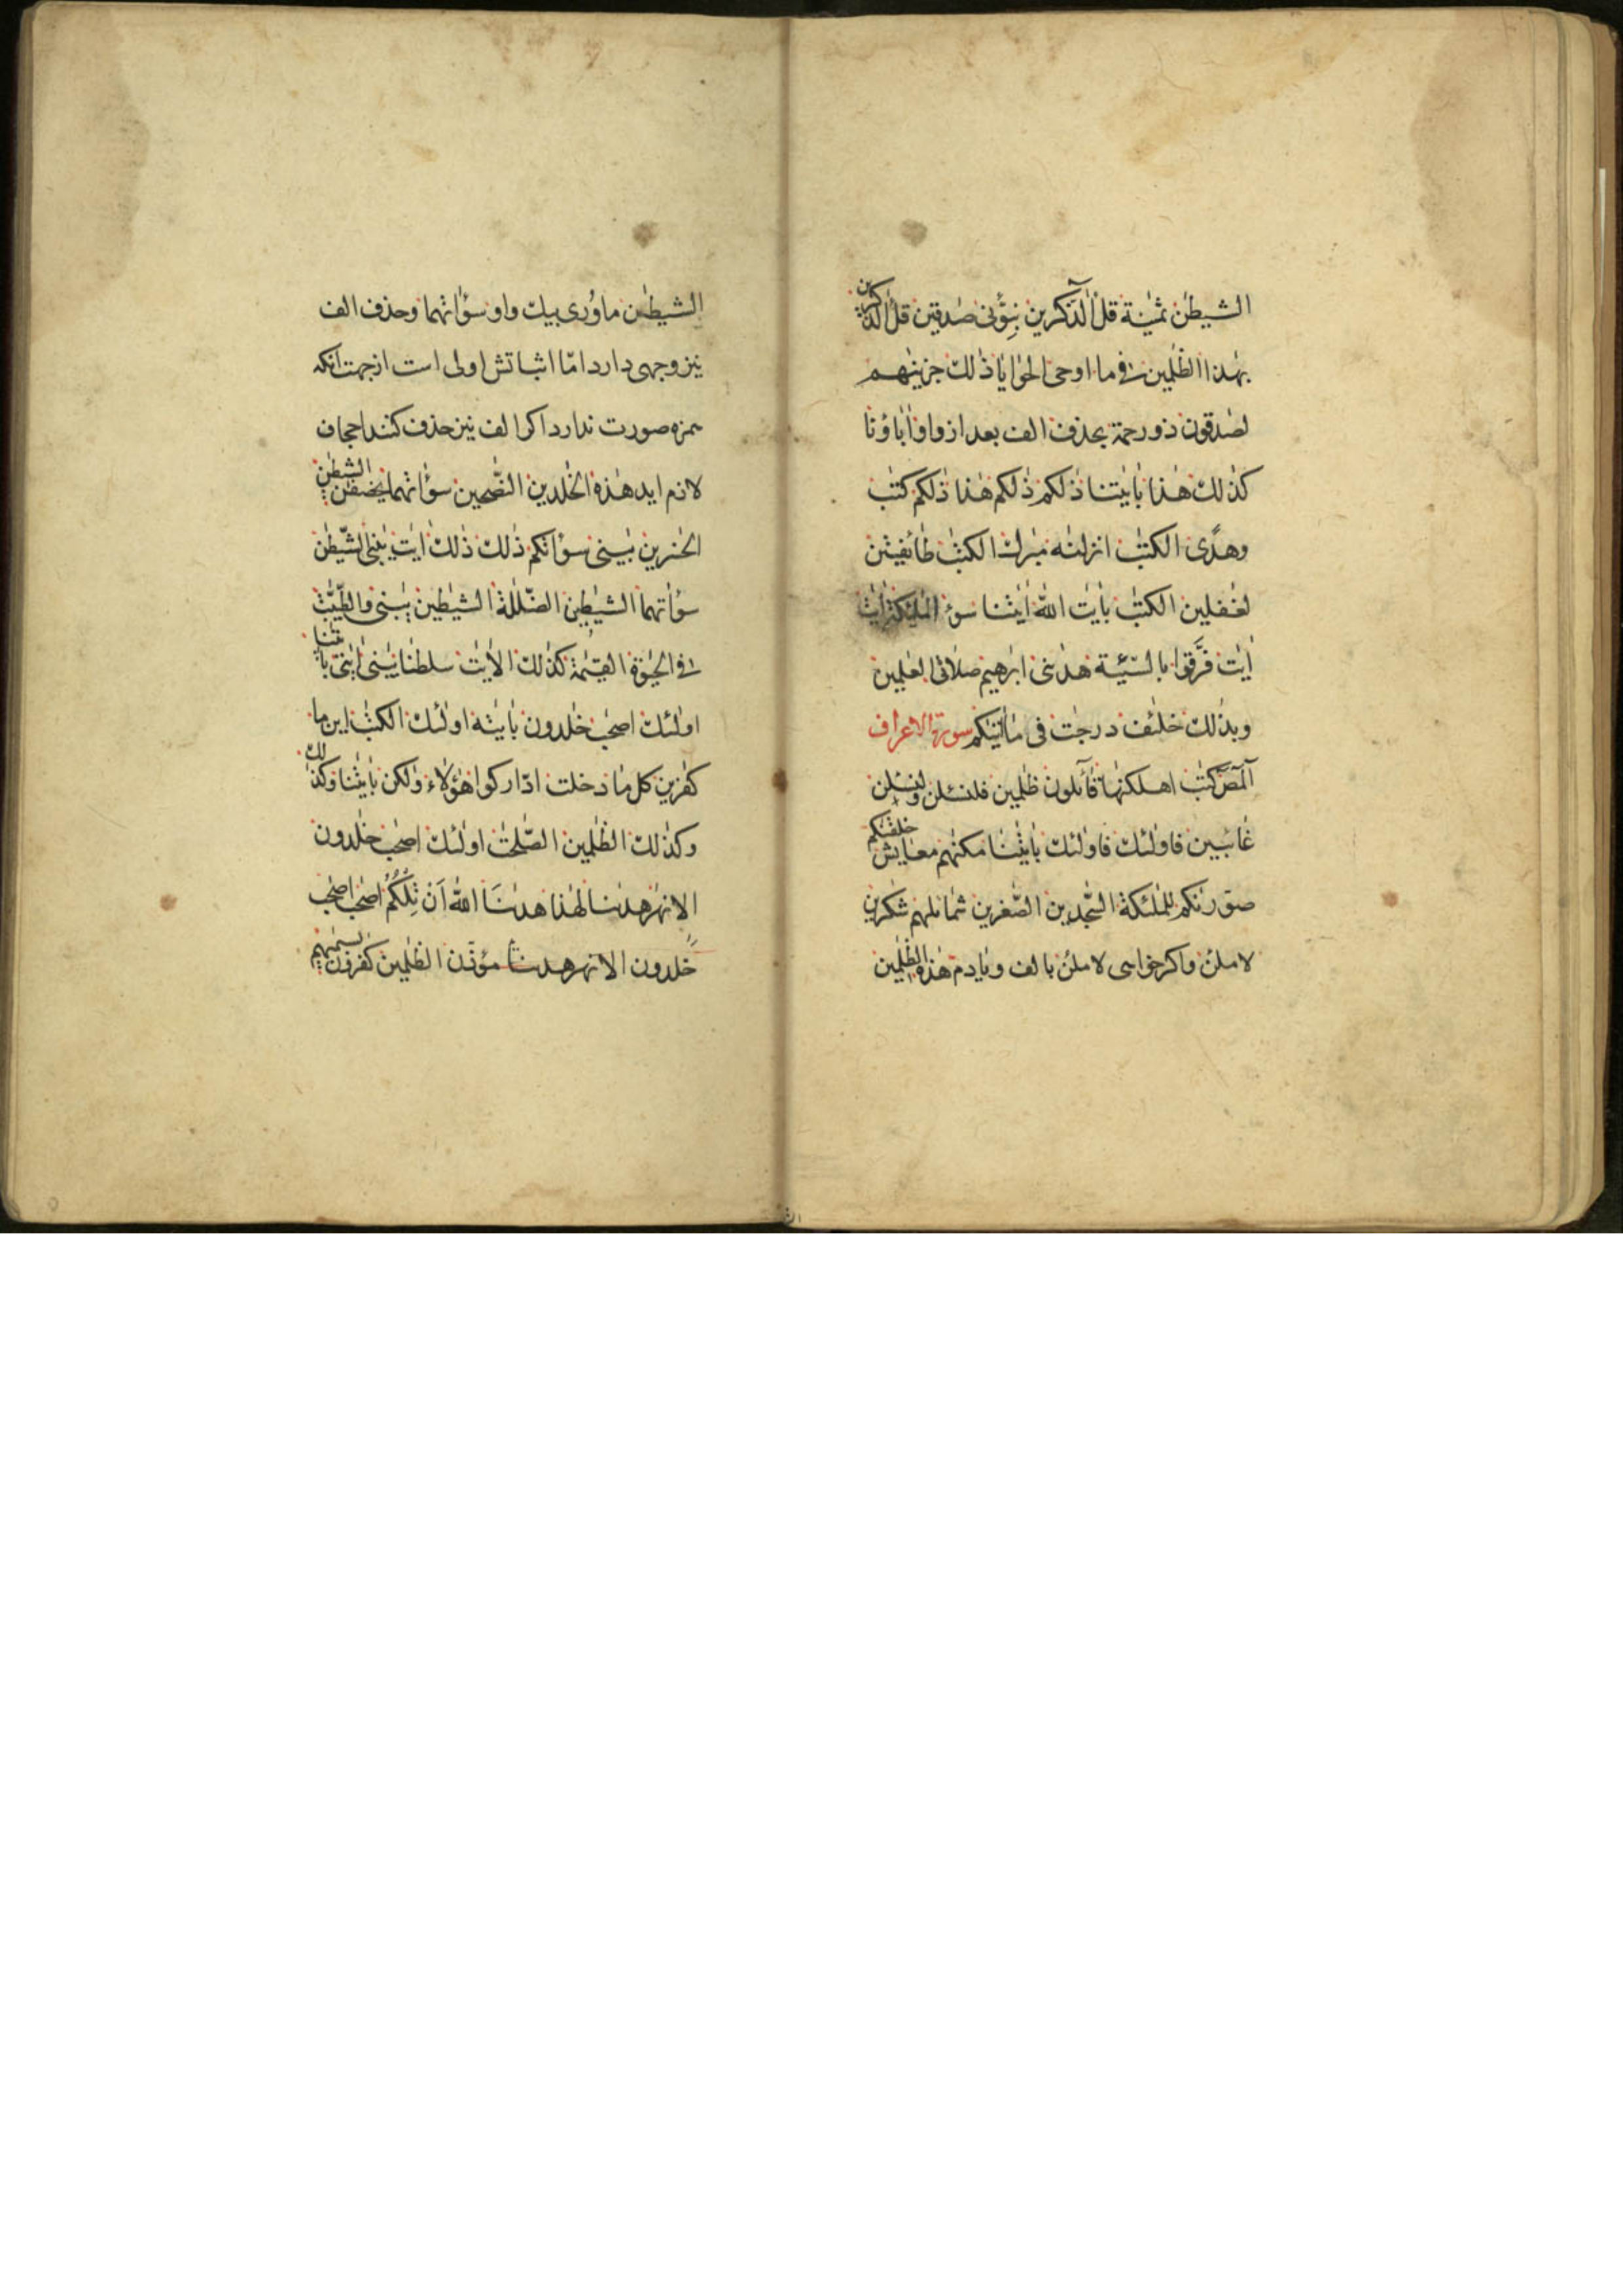 الشیطٰن ثمٰنیة قل آلذّکرین نبّؤنی صٰدقین قل آلذّکرین
بهٰذا الظٰلمین فی ما اوحی الحوایا ذٰلك جزینٰهم
لصٰدقون ذو رحمة بحذف الف بعد از واو اٰباؤنا
کذٰلك هٰذا باٰیٰتنا ذٰلکم ذٰلکم هٰذا ذٰلکم کتٰب
وهدًی الکتٰب انزلنٰه مبٰرك الکتٰب طائفتین
لغٰفلین الکتٰب باٰیٰت الله اٰیٰتنا سوٓء الملٰئکة اٰیٰت
اٰیٰت فرّقوا بالسّیّئة هدٰنی ابرٰهیم صلاتی العٰلمین
وبذٰلك خلٰئف درجٰت فی ما اٰتیٰکم سورة الاعراف
آلمٓصٓ کتٰب اهلکنٰها قآئلون ظٰلمین فلنسئلن ولنسئلن
غائبین فاولٰئك فاولٰئك باٰیٰتنا مکنّٰهم معایش خلقنٰکم
صوّرنٰکم للملٰئکة السّٰجدین الصّٰغرین شمائلهم شٰکرین
لاملئن واکر خواهی لاملئن بالف ویاٰدم هٰذه الظّٰلمین
الشیطٰن ماوُری بیك واو سوْاٰتهما وحذف الف
نیز وجهی دارد امّا اثباتش اولی است از جهت آنکه
همزه صورت ندارد اکر الف نیز حذف کنند اجحاف
لازم اید هٰذه الخٰلدین النّٰصحین سوْاٰتهما یخصفٰن الشیطٰن
الخٰسرین یٰبنی سوْاٰتکم ذٰلك ذٰلك اٰیٰت یٰبنی الشّیطٰن
سوْاٰتهما الشیٰطین الضّلٰلة الشیٰطین یٰبنی والطّیّبٰت
فی الحیٰوة القیٰمة کذٰلك الاٰیٰت سلطٰنا یٰبنی اٰیٰتی باٰیٰتنا
اولٰئك اصحٰب خٰلدون باٰیٰته اولٰئك الکتٰب این ما
کٰفرین کل ما دخلت ادّارکوا هٰؤلاء ولٰکن باٰیٰتنا وکذٰلك
وکذٰلك الظٰلمین الصّٰلحٰت اولٰئك اصحٰب خٰلدون
الانهٰر هدٰنا لهٰذا هدٰنَا الله اَنْ تِلْکُمُ اصحٰب اصحٰب
خٰلدون الانهٰر هدٰنا مؤذّن الظٰلمین کٰفرون بسیمٰهم